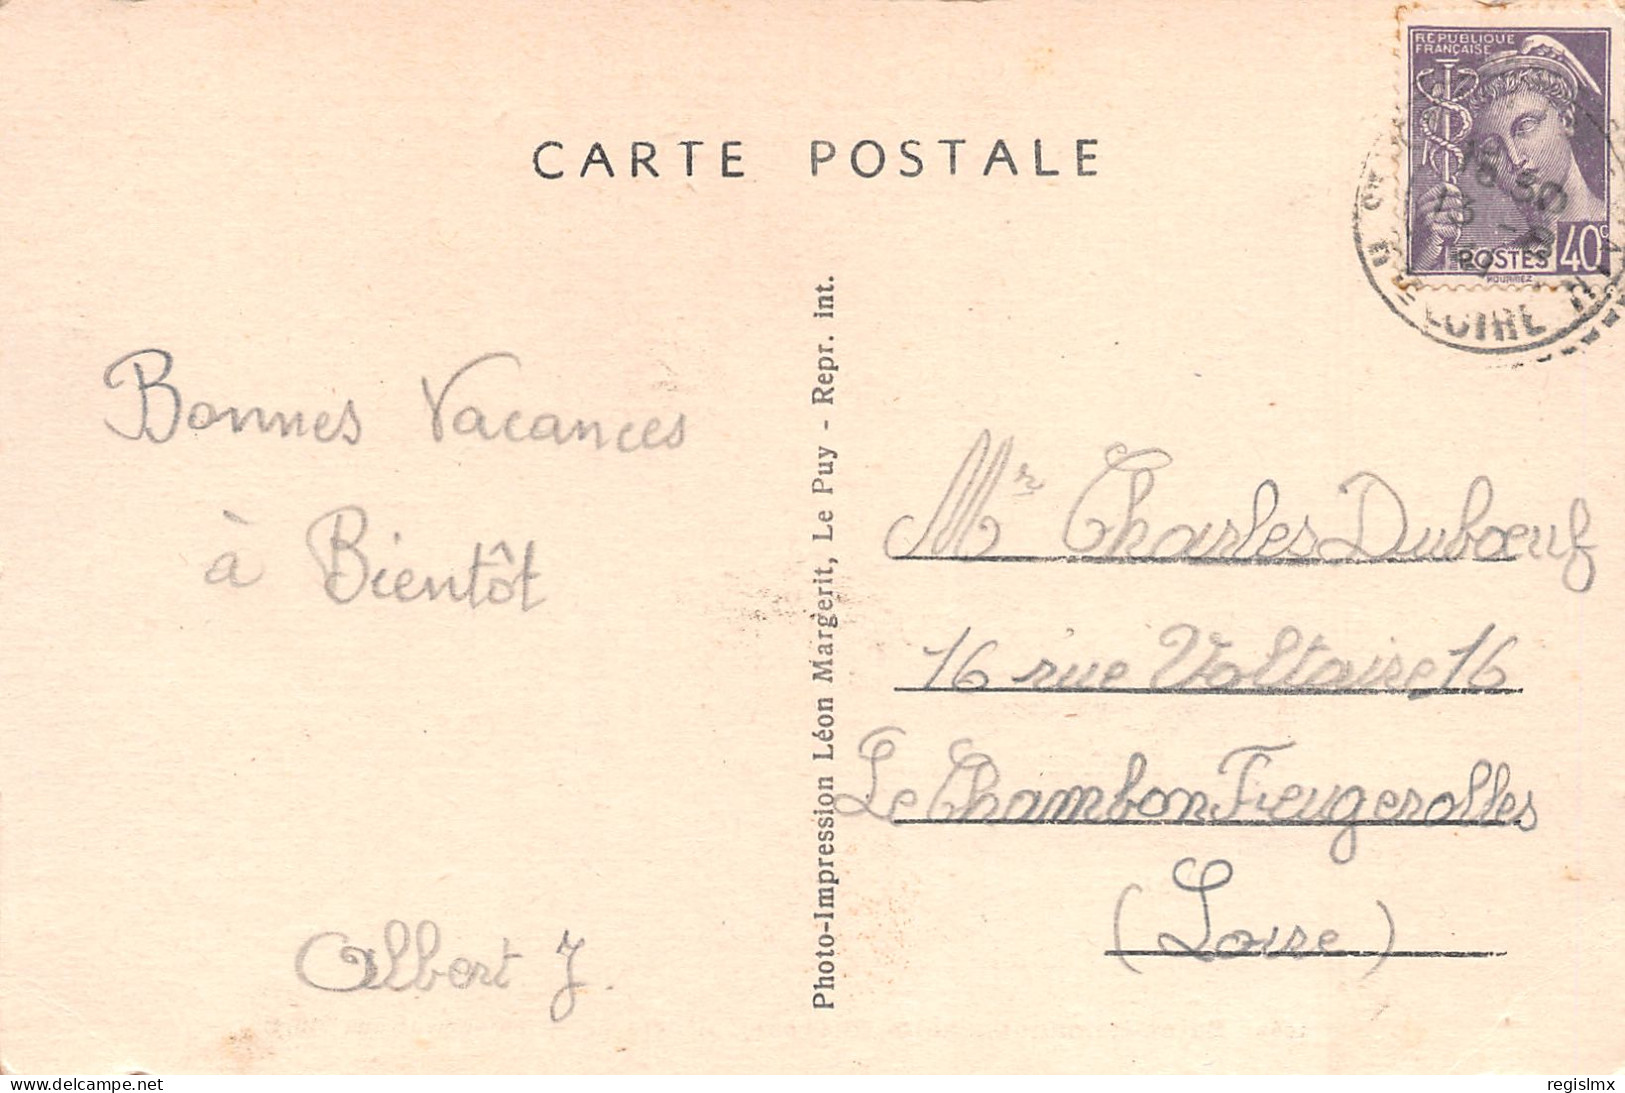 CARTE POSTALE
REPUBLIQUE
FRANÇAISE
POSTES
40c
LOIRE
Bonnes Vacances
à Bientôt
Albert J.
Photo-Impression Léon Margerit, Le Puy - Repr. int.
Mr Charles Dubœuf
16 rue Voltaire 16
Le Chambon Feugerolles
(Loire)
delcampe.net
regislmx